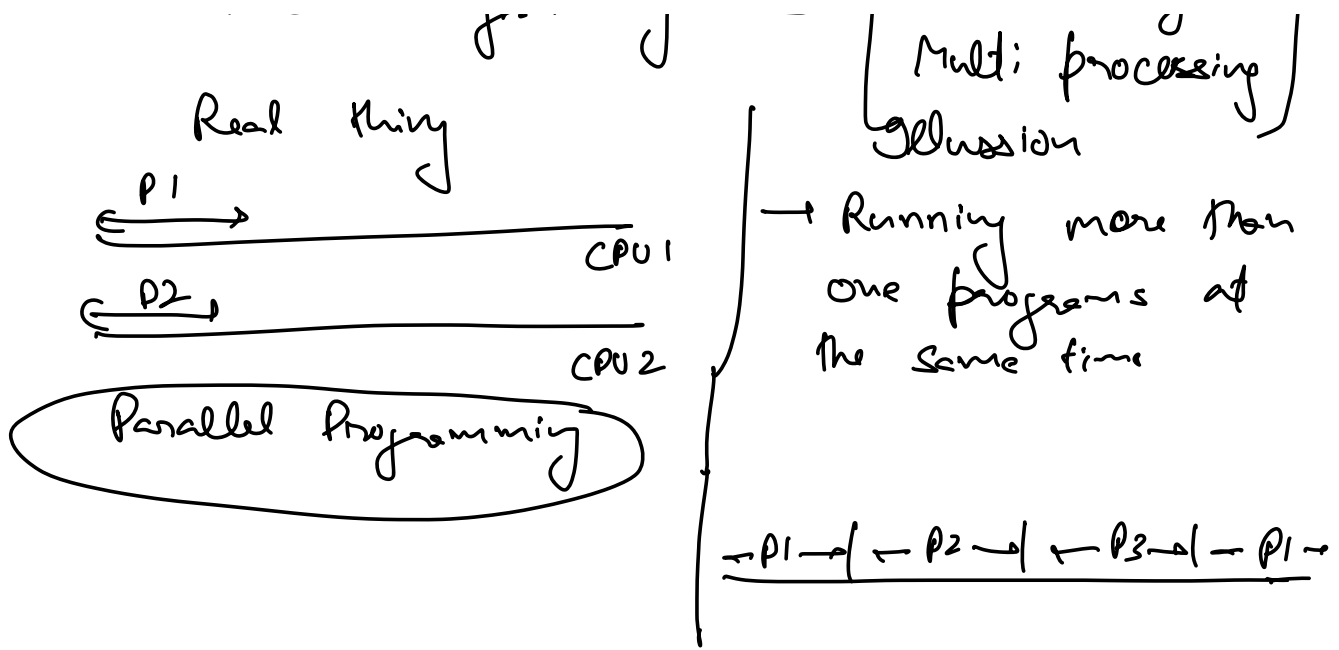 Real thing
P1
CPU1
P2
CPU2
Parallel Programming
Multi processing
→ Running more than
one programs at
the same time
←P1→| ← P2 →| ← P3→| ← P1→